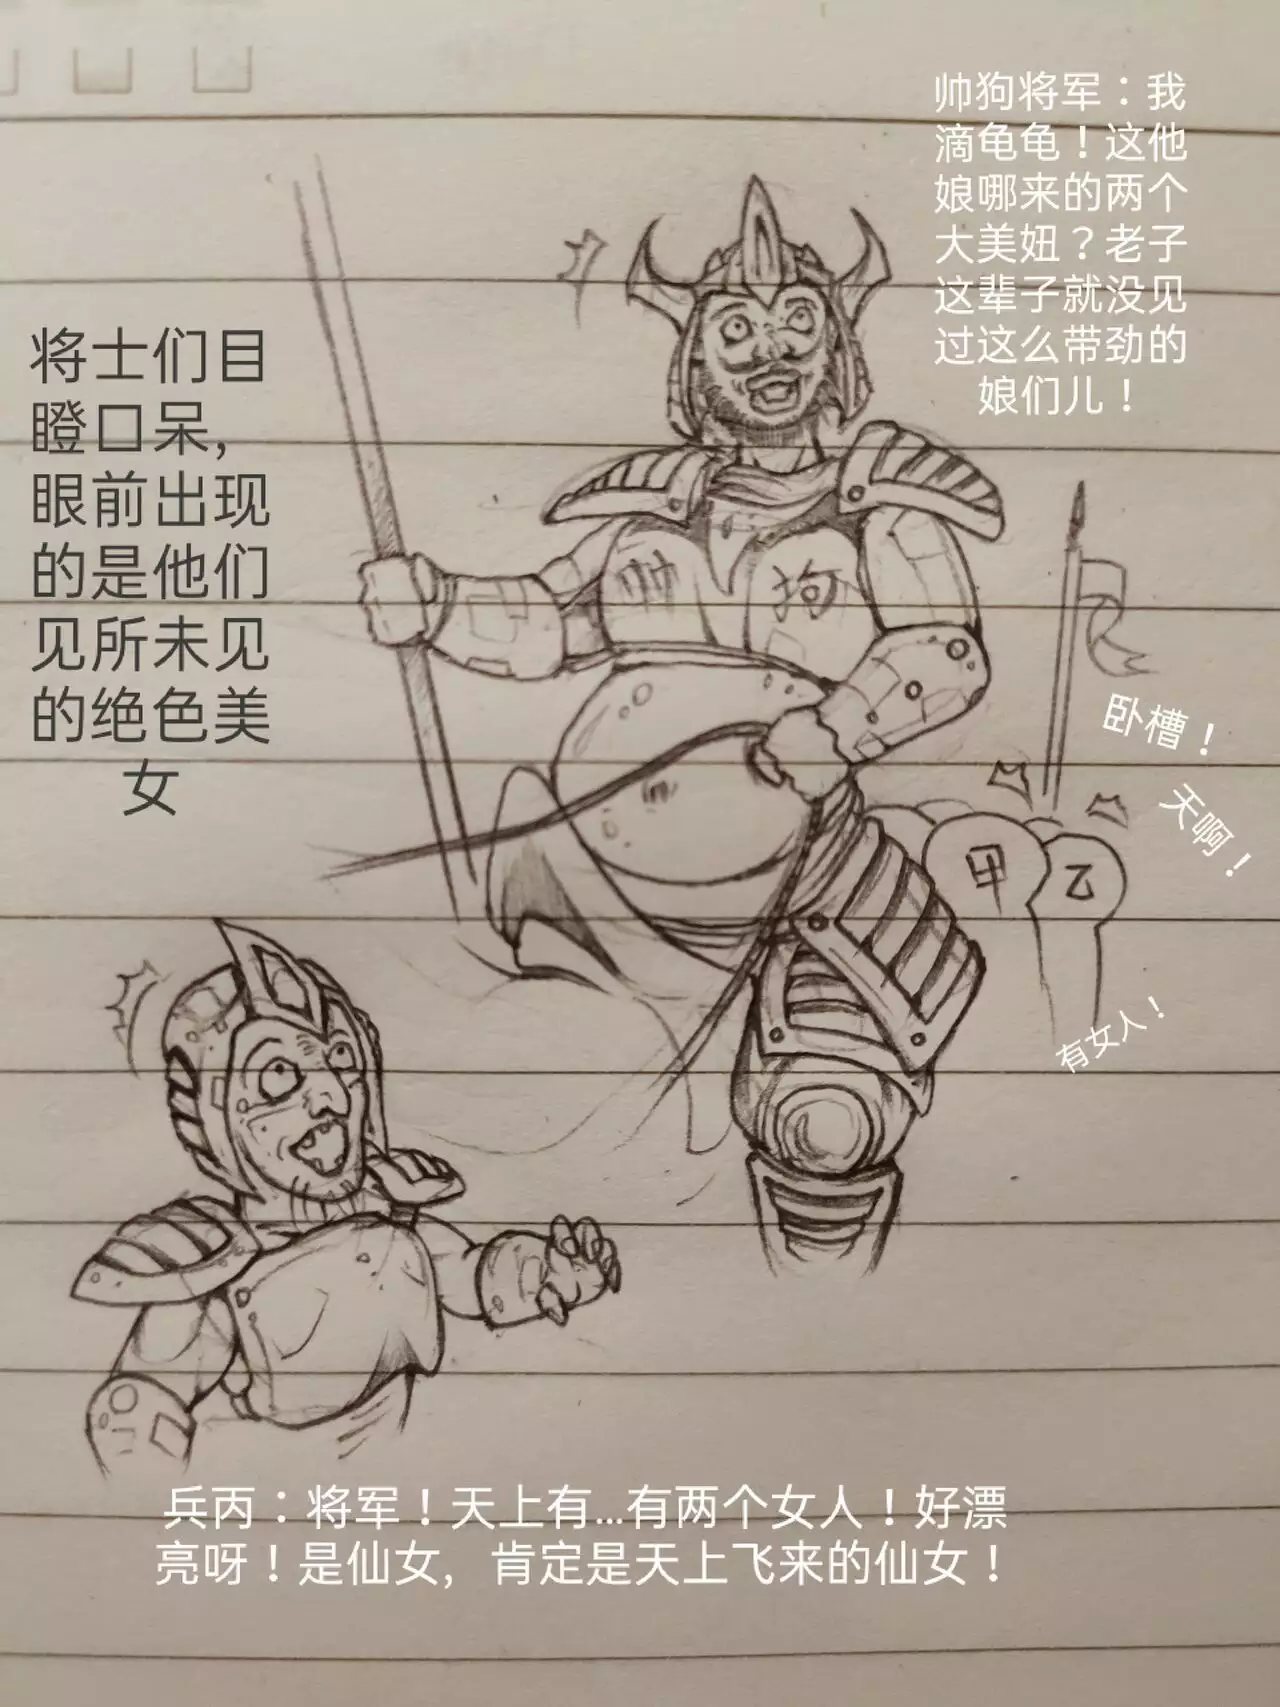 帅狗将军：我
滴龟龟！这他
娘哪来的两个
大美妞？老子
这辈子就没见
过这么带劲的
娘们儿！
将士们目
瞪口呆，
眼前出现
的是他们
见所未见
的绝色美
女
帅 狗
卧槽！
天啊！
甲 乙
有女人！
兵丙：将军！天上有...有两个女人！好漂
亮呀！是仙女，肯定是天上飞来的仙女！